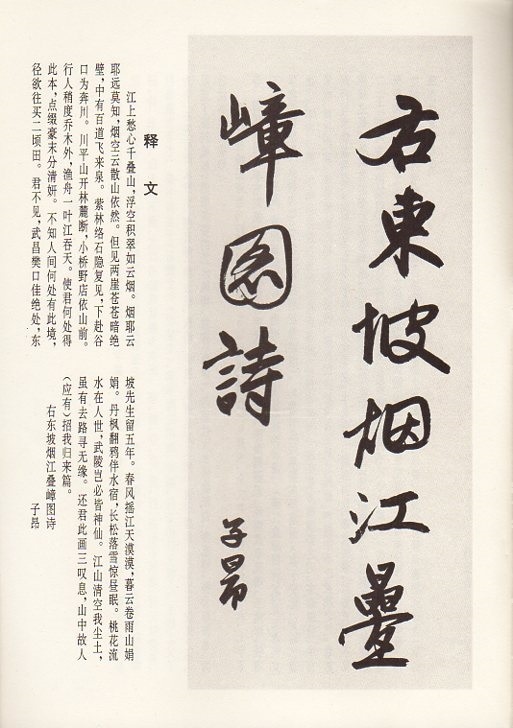 右東坡烟江疊
嶂圖詩
子昂
释文
江上愁心千叠山，浮空积翠如云烟。烟耶云
耶远莫知，烟空云散山依然。但见两崖苍苍暗绝
壁，中有百道飞来泉。萦林络石隐复见，下赴谷
口为奔川。川平山开林麓断，小桥野店依山前。
行人稍度乔木外，渔舟一叶江吞天。使君何处得
此本，点缀豪末分清妍。不知人间何处有此境，
径欲往买二顷田。君不见，武昌樊口佳绝处，东
坡先生留五年。春风摇江天漠漠，暮云卷雨山娟
娟。丹枫翻鸦伴水宿，长松落雪惊昼眠。桃花流
水在人世，武陵岂必皆神仙。江山清空我尘土，
虽有去路寻无缘。还君此画三叹息，山中故人
（应有）招我归来篇。
右东坡烟江叠嶂图诗
子昂